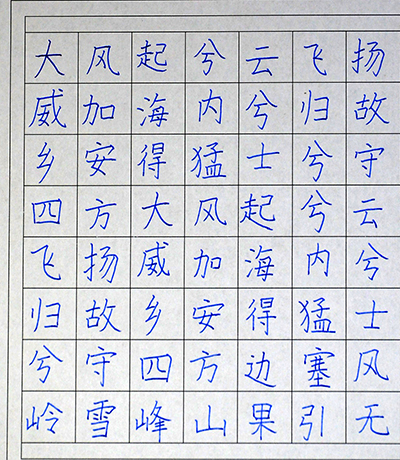 大风起兮云飞扬
威加海内兮归故
乡安得猛士兮守
四方大风起兮云
飞扬威加海内兮
归故乡安得猛士
兮守四方边塞风
岭雪峰山果引无